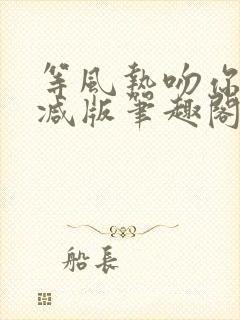 等風熱吻你
减版筆趣閣
船長